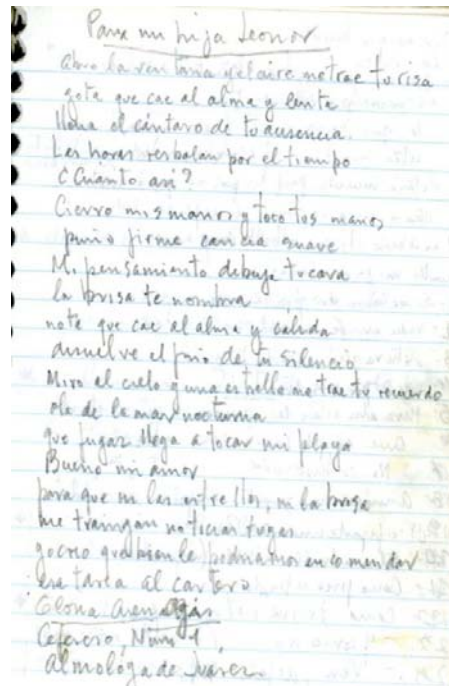 Para mi hija Leonor
Abro la ventana y el aire me trae tu risa
gota que cae al alma y lenta
llena el cántaro de tu ausencia
Las horas resbalan por el tiempo
¿Cuánto así?
Cierro mis manos y toco tus manos
puño firme caricia suave
Mi pensamiento dibuja tu cara
la brisa te nombra
nota que cae al alma y cálida
disuelve el frío de tu silencio
Miro al cielo y una estrella me trae tu recuerdo
ola de la mar nocturna
que fugaz llega a tocar mi playa
Bueno mi amor
para que ni las estrellas, ni la brisa
me traigan noticias tuyas
yo creo que bien le podríamos encomendar
esa tarea al cartero
Gloria Arenas
Cefereso, Núm 1
Almoloya de Juárez